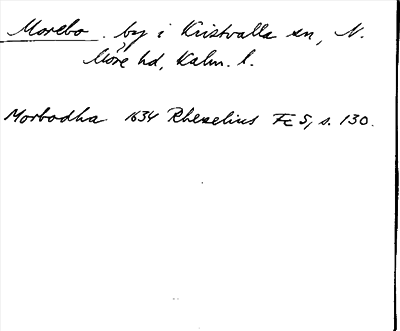 Morebo. by i Kristvalla sn, N.
Möre hd, Kalm. l.
Morbodha 1634 Rhezelius FE S, s. 130.